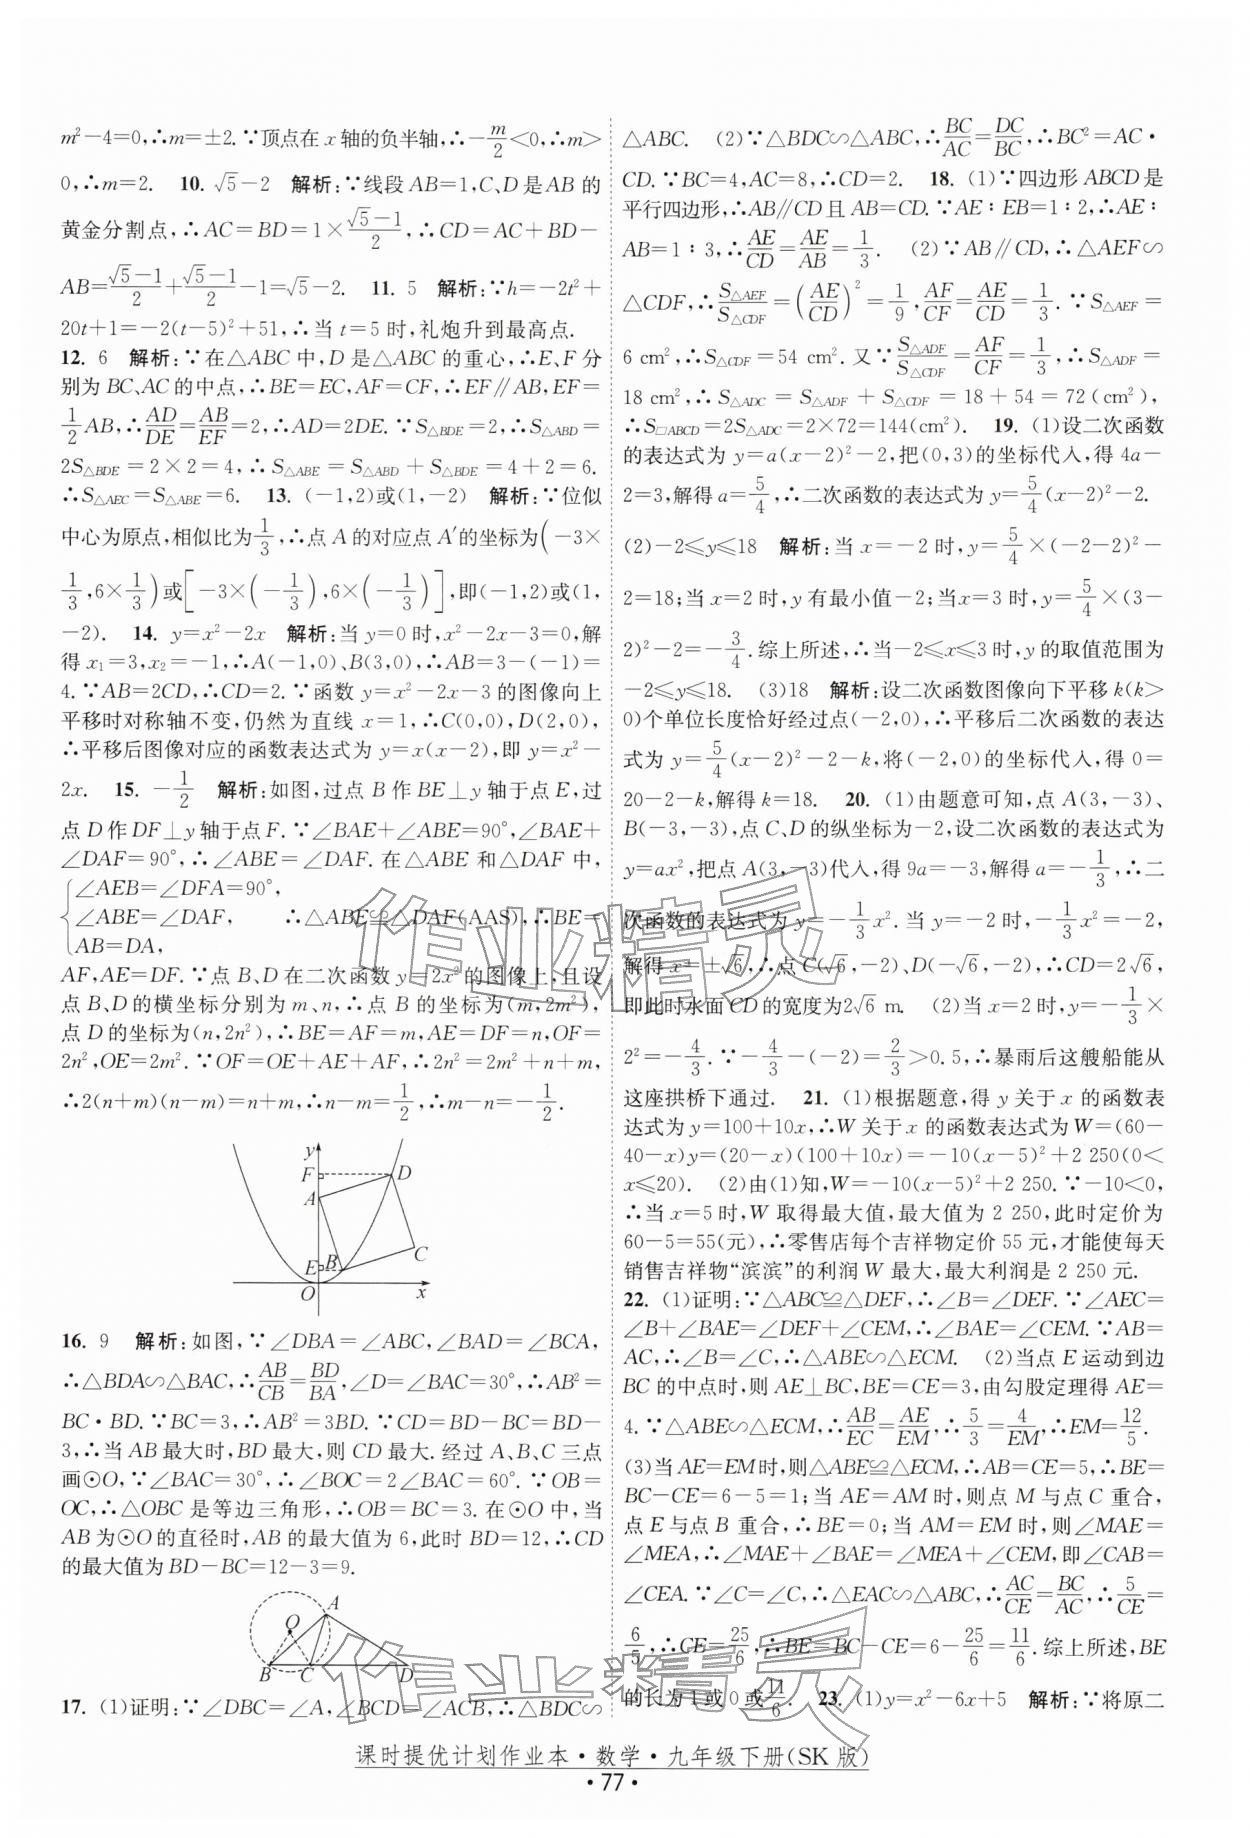 m²-4=0,∴m=±2.∵顶点在 x 轴的负半轴,∴-m/2<0,∴m>
0,∴m=2. 10. √5-2 解析:∵线段 AB=1,C、D 是 AB 的
黄金分割点,∴AC=BD=1×(√5-1)/2,∴CD=AC+BD-
AB=(√5-1)/2+(√5-1)/2-1=√5-2. 11. 5 解析:∵h=-2t²+
20t+1=-2(t-5)²+51,∴当 t=5 时,礼炮升到最高点.
12. 6 解析:∵在△ABC 中,D 是△ABC 的重心,∴E、F 分
别为 BC、AC 的中点,∴BE=EC,AF=CF,∴EF∥AB,EF=
1/2 AB,∴AD/DE=AB/EF=2,∴AD=2DE.∵S△BDE=2,∴S△ABD=
2S△BDE=2×2=4,∴S△ABE=S△ABD+S△BDE=4+2=6.
∴S△AEC=S△ABE=6. 13. (-1,2)或(1,-2) 解析:∵位似
中心为原点,相似比为1/3,∴点 A 的对应点 A′的坐标为(-3×
1/3,6×1/3)或[-3×(-1/3),6×(-1/3)],即(-1,2)或(1,
-2). 14. y=x²-2x 解析:当 y=0 时,x²-2x-3=0,解
得 x₁=3,x₂=-1,∴A(-1,0)、B(3,0),∴AB=3-(-1)=
4.∵AB=2CD,∴CD=2.∵函数 y=x²-2x-3 的图像向上
平移时对称轴不变,仍然为直线 x=1,∴C(0,0),D(2,0),
∴平移后图像对应的函数表达式为 y=x(x-2),即 y=x²-
2x. 15. -1/2 解析:如图,过点 B 作 BE⊥y 轴于点 E,过
点 D 作 DF⊥y 轴于点 F.∵∠BAE+∠ABE=90°,∠BAE+
∠DAF=90°,∴∠ABE=∠DAF.在△ABE 和△DAF 中,
∠AEB=∠DFA=90°,
∠ABE=∠DAF, ∴△ABE≌△DAF(AAS),∴BE=
AB=DA,
AF,AE=DF.∵点 B、D 在二次函数 y=2x²的图像上,且设
点 B、D 的横坐标分别为 m、n,∴点 B 的坐标为(m,2m²),
点 D 的坐标为(n,2n²),∴BE=AF=m,AE=DF=n,OF=
2n²,OE=2m².∵OF=OE+AE+AF,∴2n²=2m²+n+m,
∴2(n+m)(n-m)=n+m,∴n-m=1/2,∴m-n=-1/2.
y
F
D
A
E
B
C
O
x
16. 9 解析:如图,∵∠DBA=∠ABC,∠BAD=∠BCA,
∴△BDA∽△BAC,∴AB/CB=BD/BA,∠D=∠BAC=30°,∴AB²=
BC·BD.∵BC=3,∴AB²=3BD.∵CD=BD-BC=BD-
3,∴当 AB 最大时,BD 最大,则 CD 最大.经过 A、B、C 三点
画⊙O,∵∠BAC=30°,∴∠BOC=2∠BAC=60°.∵OB=
OC,∴△OBC 是等边三角形,∴OB=BC=3.在⊙O 中,当
AB 为⊙O 的直径时,AB 的最大值为 6,此时 BD=12,∴CD
的最大值为 BD-BC=12-3=9.
A
O
B
C
D
17. (1)证明:∵∠DBC=∠A,∠BCD=∠ACB,∴△BDC∽
△ABC. (2)∵△BDC∽△ABC,∴BC/AC=DC/BC,∴BC²=AC·
CD.∵BC=4,AC=8,∴CD=2. 18. (1)∵四边形 ABCD 是
平行四边形,∴AB∥CD 且 AB=CD.∵AE∶EB=1∶2,∴AE∶
AB=1∶3,∴AE/CD=AE/AB=1/3. (2)∵AB∥CD,∴△AEF∽
△CDF,∴S△AEF/S△CDF=(AE/CD)²=1/9,AF/CF=AE/CD=1/3.∵S△AEF=
6 cm²,∴S△CDF=54 cm².又∵S△ADF/S△CDF=AF/CF=1/3,∴S△ADF=
18 cm²,∴S△ADC=S△ADF+S△CDF=18+54=72(cm²),
∴S□ABCD=2S△ADC=2×72=144(cm²). 19. (1)设二次函数
的表达式为 y=a(x-2)²-2,把(0,3)的坐标代入,得 4a-
2=3,解得 a=5/4,∴二次函数的表达式为 y=5/4(x-2)²-2.
(2)-2≤y≤18 解析:当 x=-2 时,y=5/4×(-2-2)²-
2=18;当 x=2 时,y 有最小值-2;当 x=3 时,y=5/4×(3-
2)²-2=-3/4.综上所述,∴当-2≤x≤3 时,y 的取值范围为
-2≤y≤18. (3)18 解析:设二次函数图像向下平移 k(k>
0)个单位长度恰好经过点(-2,0),∴平移后二次函数的表达
式为 y=5/4(x-2)²-2-k,将(-2,0)的坐标代入,得 0=
20-2-k,解得 k=18. 20. (1)由题意可知,点 A(3,-3)、
B(-3,-3),点 C、D 的纵坐标为-2,设二次函数的表达式为
y=ax²,把点 A(3,-3)代入,得 9a=-3,解得 a=-1/3,∴二
次函数的表达式为 y=-1/3x².当 y=-2 时,-1/3x²=-2,
解得 x=±√6,∴点 C(√6,-2)、D(-√6,-2),∴CD=2√6,
即此时水面 CD 的宽度为2√6 m. (2)当 x=2 时,y=-1/3×
2²=-4/3.∵-4/3-(-2)=2/3>0.5,∴暴雨后这艘船能从
这座拱桥下通过. 21. (1)根据题意,得 y 关于 x 的函数表
达式为 y=100+10x,∴W 关于 x 的函数表达式为 W=(60-
40-x)y=(20-x)(100+10x)=-10(x-5)²+2 250(0<
x≤20). (2)由(1)知,W=-10(x-5)²+2 250.∵-10<0,
∴当 x=5 时,W 取得最大值,最大值为 2 250,此时定价为
60-5=55(元),∴零售店每个吉祥物定价 55 元,才能使每天
销售吉祥物“滨滨”的利润 W 最大,最大利润是 2 250 元.
22. (1)证明:∵△ABC≌△DEF,∴∠B=∠DEF.∵∠AEC=
∠B+∠BAE=∠DEF+∠CEM,∴∠BAE=∠CEM.∵AB=
AC,∴∠B=∠C,∴△ABE∽△ECM. (2)当点 E 运动到边
BC 的中点时,则 AE⊥BC,BE=CE=3,由勾股定理得 AE=
4.∵△ABE∽△ECM,∴AB/EC=AE/EM,∴5/3=4/EM,∴EM=12/5.
(3)当 AE=EM 时,则△ABE≌△ECM,∴AB=CE=5,∴BE=
BC-CE=6-5=1;当 AE=AM 时,则点 M 与点 C 重合,
点 E 与点 B 重合,∴BE=0;当 AM=EM 时,则∠MAE=
∠MEA,∴∠MAE+∠BAE=∠MEA+∠CEM,即∠CAB=
∠CEA.∵∠C=∠C,∴△EAC∽△ABC,∴AC/CE=BC/AC,∴5/CE=
6/5,∴CE=25/6,∴BE=BC-CE=6-25/6=11/6.综上所述,BE
的长为 1 或 0 或11/6. 23. (1)y=x²-6x+5 解析:∵将原二
作业精灵
作业精灵
课时提优计划作业本·数学·九年级下册(SK 版)
·77·